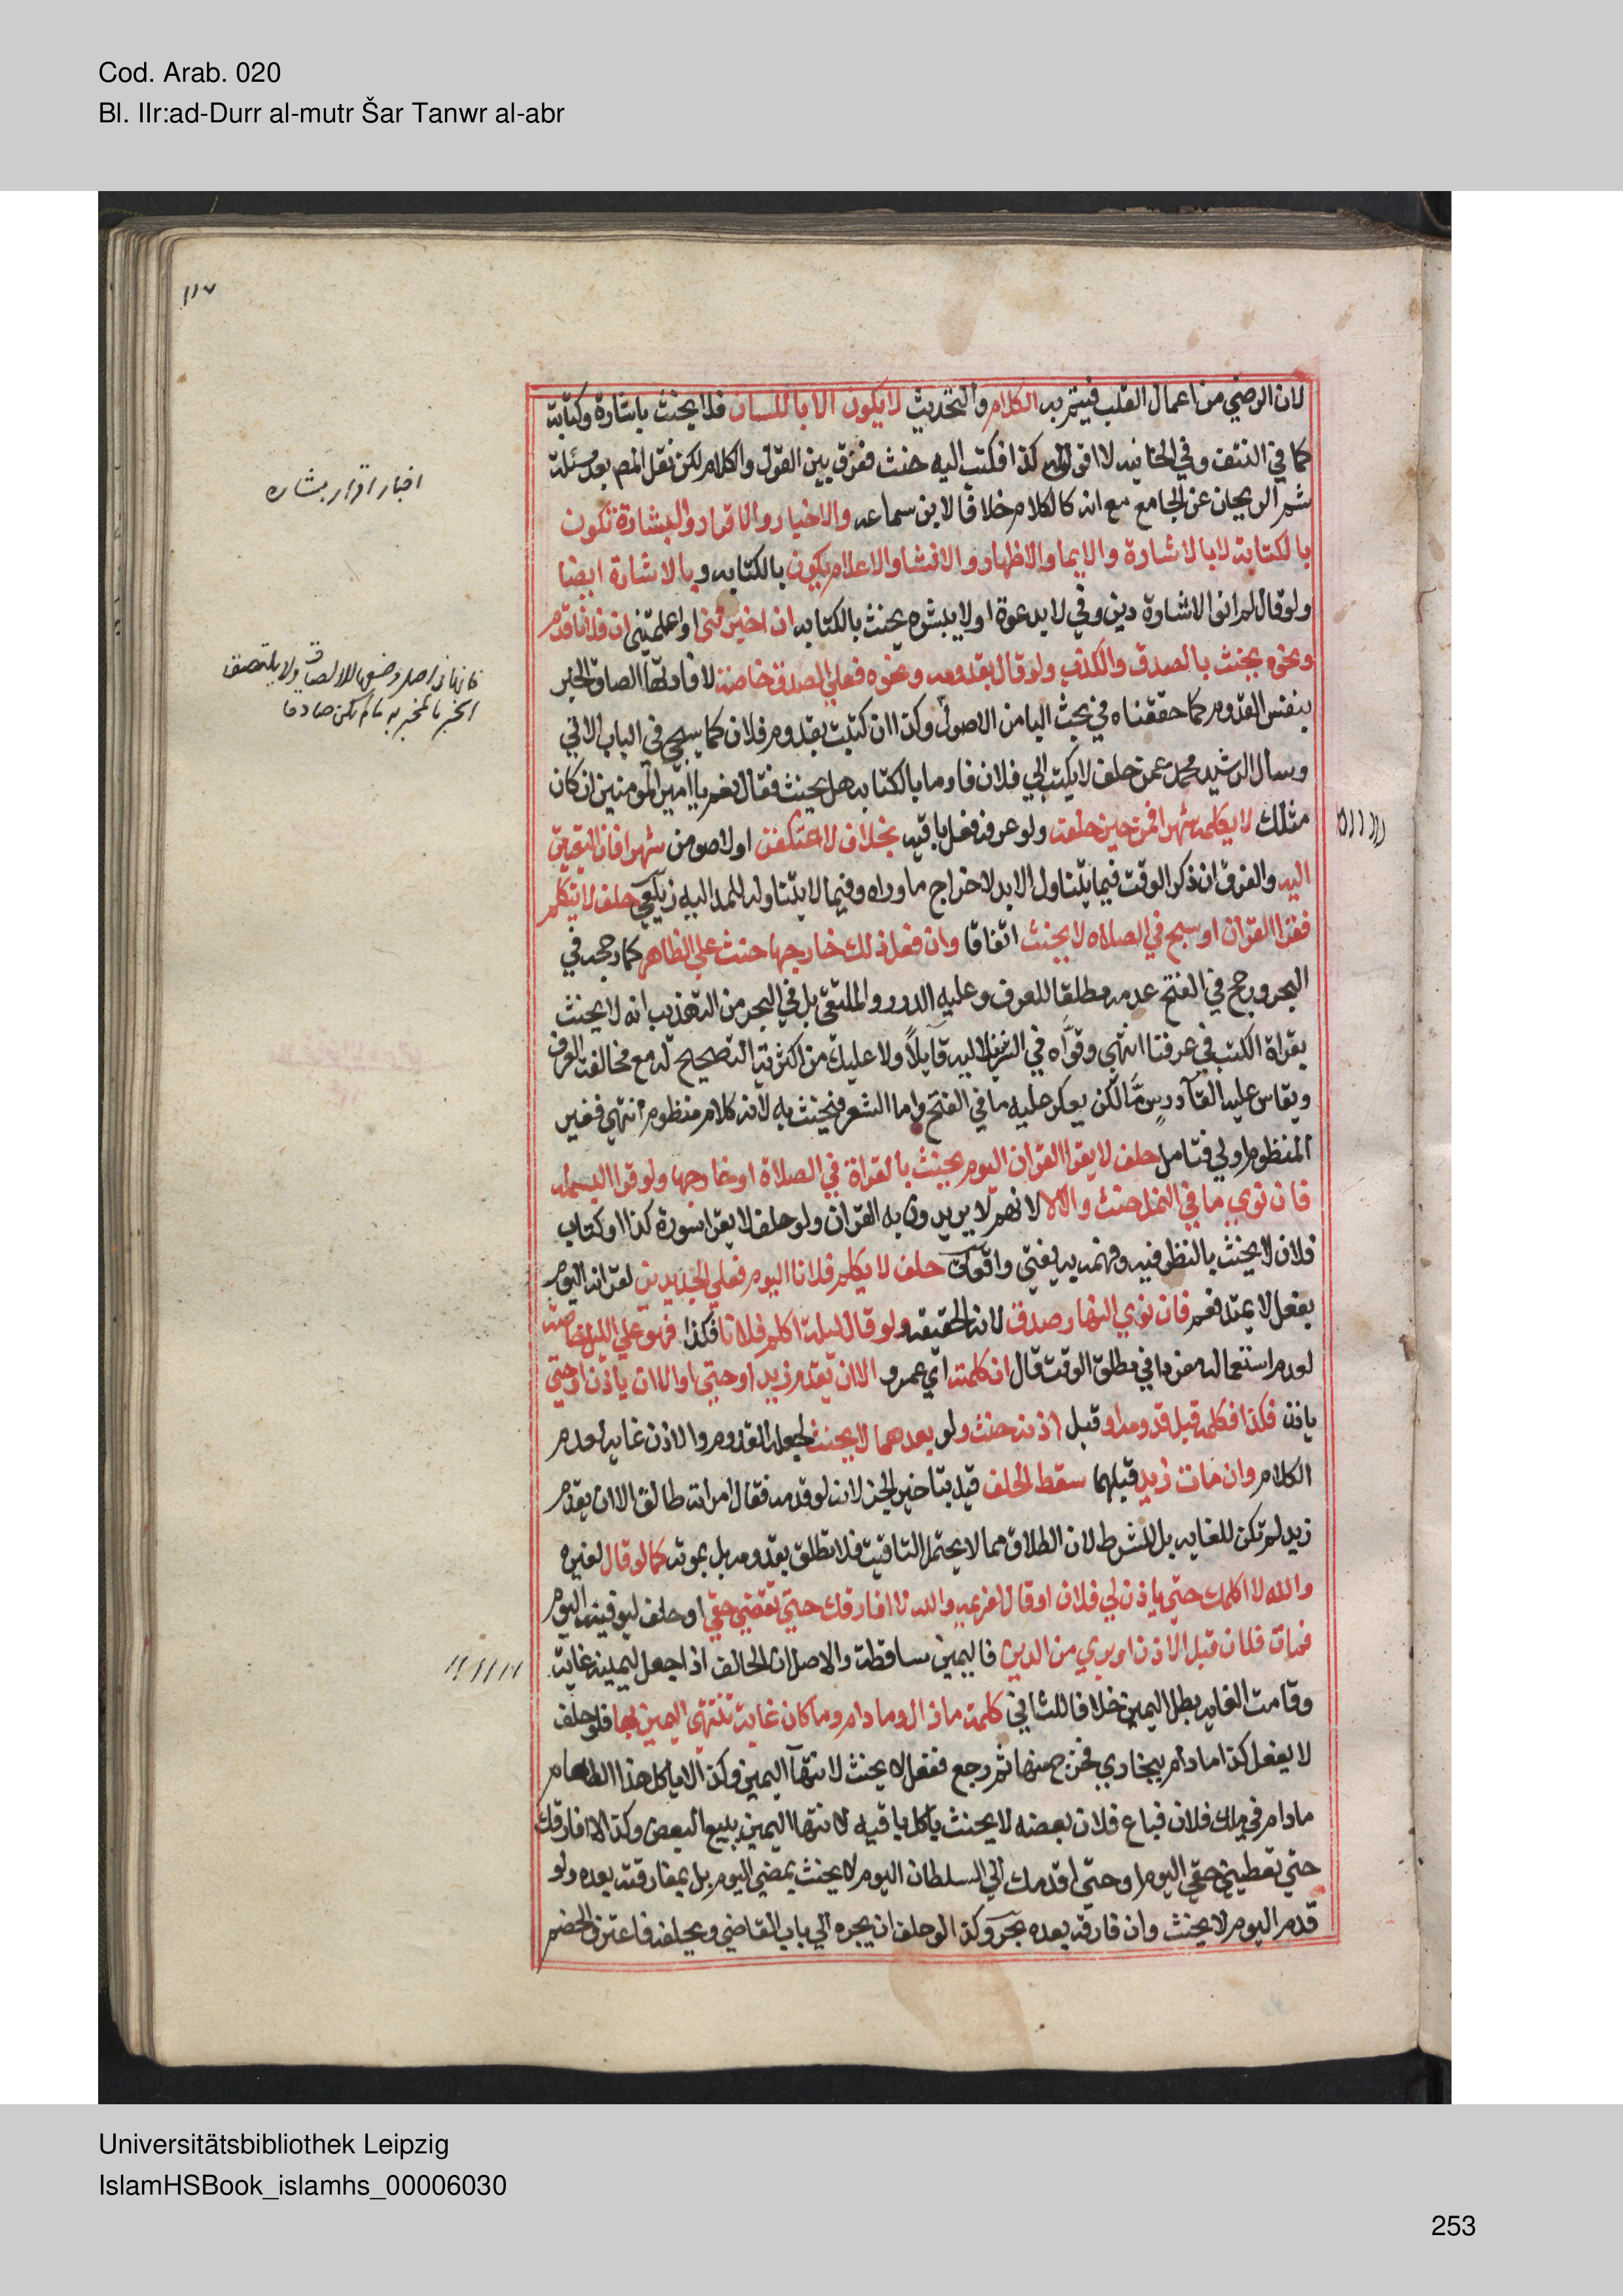 Cod. Arab. 020
Bl. IIr:ad-Durr al-mutr Šar Tanwr al-abr
١١٧
لان الرضي من اعمال القلب فيتم به الكلام والتحديث لا يكون الا باللسان فلا يحنث باشارة وكتابة
كما في النتف وفي الخانيه لا اقول كذا فكتب اليه حنث ففرق بين القول والكلام لكن نقل المص بعد مسئلة
شم الريحان عن الجامع مع انه كالكلام خلافا لابن سماعه والاخبار والاقرار والبشارة تكون
بالكتابة لا بالاشارة والايما والاظهار والانشا والاعلام يكون بالكتابه وبالاشارة ايضا
ولو قال لم انو الاشارة دين وفي لا يدعوة او لا يبشره يحنث بالكتابه ان اخبرتني او اعلمتني ان فلانا قدم
ونحوه يحنث بالصدق والكذب ولو قال بقدومه ونحوه فعلي الصدق خاصة لافادتها الصاق الخبر
بنفس القدوم كما حققناه في بحث البا من الاصول وكذا ان كتبت بقدوم فلان كما سيجي في الباب الاتي
وسال الرشيد محمد عمن حلف لا يكتب الي فلان فاوما بالكتابه هل يحنث فقال نعم يا امير المومنين ان كان
مثلك لا يكلمه شهرا فمن حين حلفه ولو عرفه فعلي باقيه بخلاف لاعتكفن او لاصومن شهرا فان التعيين
اليه والفرق ان ذكر الوقت فيما يتناول الابد لاخراج ما وراه وفيما لا يتناوله للمد اليه زيلعي حلف لا يتكلم
فقرا القران او سبح في الصلاه لا يحنث اتفاقا وان فعل ذلك خارجها حنث علي الظاهر كما رجحه في
البحر ورجح في الفتح عدمه مطلقا للعرف وعليه الدرر والملتقى بل في البحر من التهذيب انه لا يحنث
بقراة الكتب في عرفنا انتهي وقواه في الشرنبلاليه قايلا ولا عليك من اكثرية التصحيح له مع مخالفته العرف
ويقاس عليه القآ درس مّا لكن يعكر عليه ما في الفتح واما الشعر فيحنث به لانه كلام منظوم انتهي فغير
المنظوم اولي فتامل حلف لا يقرا القران اليوم يحنث بالقراة في الصلاة او خارجها ولو قرا البسمله
فان نوي ما في النمل حنث والا لا لانهم لا يريدون به القران ولو حلف لا يقرا سورة كذا او كتاب
فلان لا يحنث بالنظر فيه وفهمه به يفتي واقوكة حلف لا يكلم فلانا اليوم فعلي الجديدين لقرانه اليوم
بفعل لا يمتد فعم فان نوي النهار صدق لانه الحقيقه ولو قال ليلة اكلم فلانا فكذا فهو علي الليل خاصة
لعدم استعماله مفردا في مطلق الوقت قال ان كلمته اي عمرو الا ان يقدم زيد او حتي او الا ان ياذن او حتي
ياذن فكذا فكلمه قبل قدومه او قبل اذنه حنث ولو بعدهما لا يحنث لجعله القدوم والاذن غاية لعدم
الكلام وان مات زيد قبلهما سقط الحلف قيد بتاخير الجزا لانه لو قدمه فقال امراته طالق الا ان يقدم
زيد لم تكن للغايه بل للشرط لان الطلاق مما لا يحتمل التاقيت فلا تطلق بقدومه بل بموته كما لو قال لغيره
والله لا اكلمك حتي ياذن لي فلان او قال لغريمه والله لا افارقك حتي تقضي حقي او حلف ليوفينه اليوم
فمات فلان قبل الاذن او بري من الدين فاليمين ساقطة والاصل ان الحالف اذا جعل ليمينه غاية
وقامت الغايه بطل اليمين خلافا للثاني كلمة ما زال وما دام وما كان غاية تنتهي اليمين بها فلو حلف
لا يفعل كذا ما دام ببخاري فخرج منها ثم رجع ففعل لا يحنث لانتهآ اليمين وكذا لا ياكل هذا الطعام
ما دام في ملك فلان فباع فلان بعضه لا يحنث باكل باقيه لانتها اليمين ببيع البعض وكذا لا افارقك
حتي تعطيني حقي اليوم او حتي اقدمك الي السلطان اليوم لا يحنث بمضي اليوم بل بمفارقته بعده ولو
قدم اليوم لا يحنث وان فارقه بعده بحر وكذا لو حلف ان يجره الي باب القاضي ويحلفه فاعترف الخصم
اخبار اقرار بشاره
Universitätsbibliothek Leipzig
IslamHSBook_islamhs_00006030
253